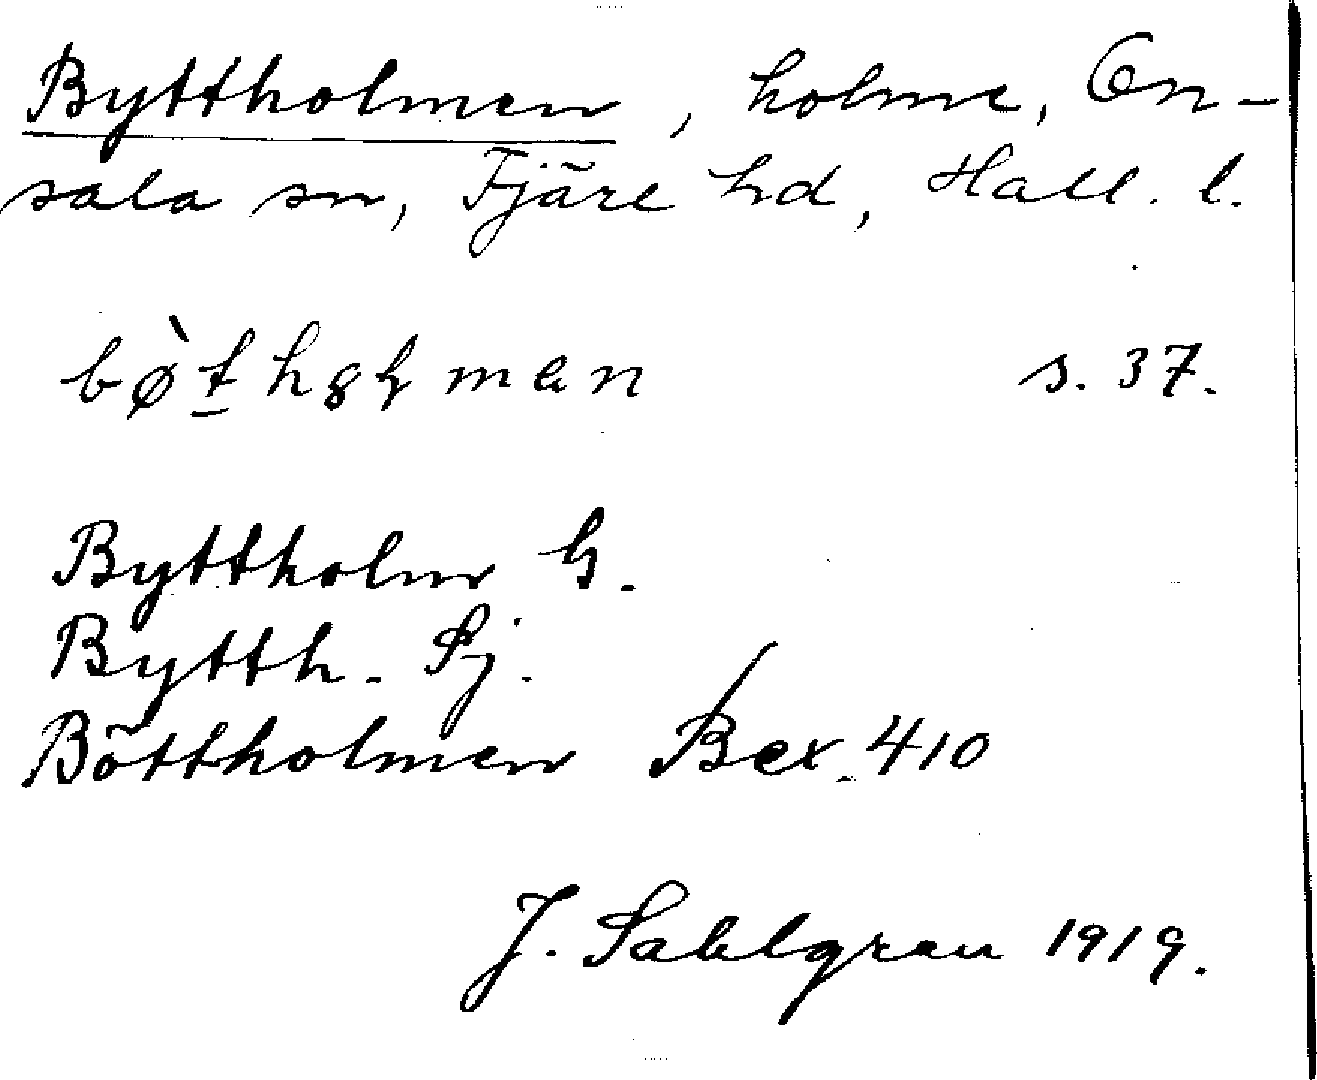 Byttholmen, holme, On-
sala sn, Fjäre hd, Hall. l.
bø̀t̲hɷlmɘn s. 37.
Byttholm G.
Bytth. Sj.
Böttholmen Bex. 410
J. Sahlgren 1919.